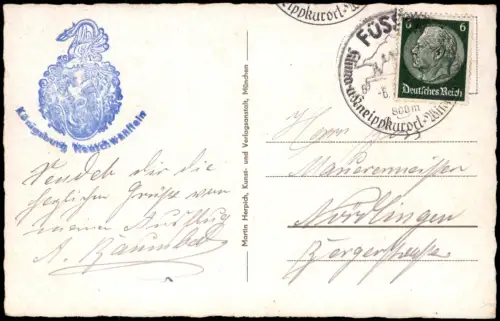 Königsburg Neuschwanstein
Sendet dir die
herzlichen Grüße von
meinem Ausflug
A.
Martin Herpich, Kunst- und Verlagsanstalt, München
Kneippkurort
FÜSSEN
800m
Kneippkurort
6 6
Deutsches Reich
Herrn
Maurermeister
Nördlingen
Bergerstrasse